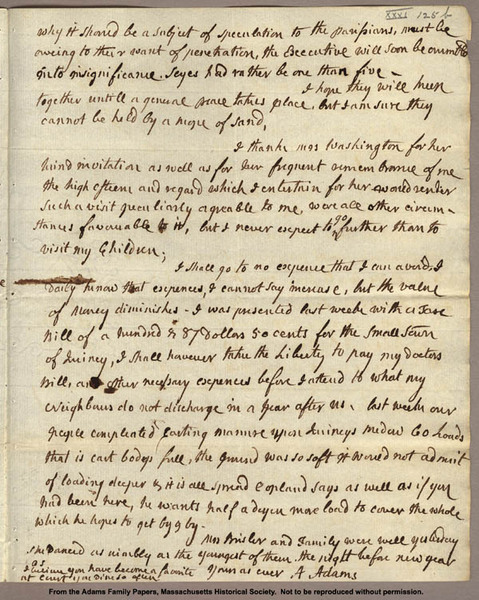 XXXI 125 b
why it should be a subject of speculation to the parisians, must be
oweing to their want of penetration, the Executive will soon be
into insignificance. Seyes had rather be one than five —
I hope they will keep
together untill a general peace takes place, but I am sure they
cannot be held by a rope of sand,
I thank Mrs Washington for her
kind invitation as well as for her frequent remembrance of me
the high esteem and regard which I entertain for her would render
such a visit peculiarly agreable to me, were all other circum-
stances favourable to it, but I never expect to go further than to
visit my Children;
I shall go to no expence that I can avoid. I
daily know that expences, I cannot say increase, but the value
of money diminishes - I was presented last week with a Tax
Bill of a hundred & 87 Dollars 50 cents for the small Town
of Quincy, I shall however take the Liberty to pay my doctors
Bill, and other necessary expences before I attend to what my
Neighbours do not discharge in a year after us. last week our
people compleated carting manure upon Quincys medow 60 loads
that is cart bodys full, the ground was so soft it would not admit
of loading deeper & it is all spread Copland says as well as if you
had been here, he wants half a dozen more load to cover the whole
which he hopes to get by & by -
Mrs Brisler and Family were well yesterday
she Danced as nimbly as the youngest of them the night before new year
as
I you have become a favorite yours as ever A Adams
at court you dine so often
From the Adams Family Papers, Massachusetts Historical Society. Not to be reproduced without permission.